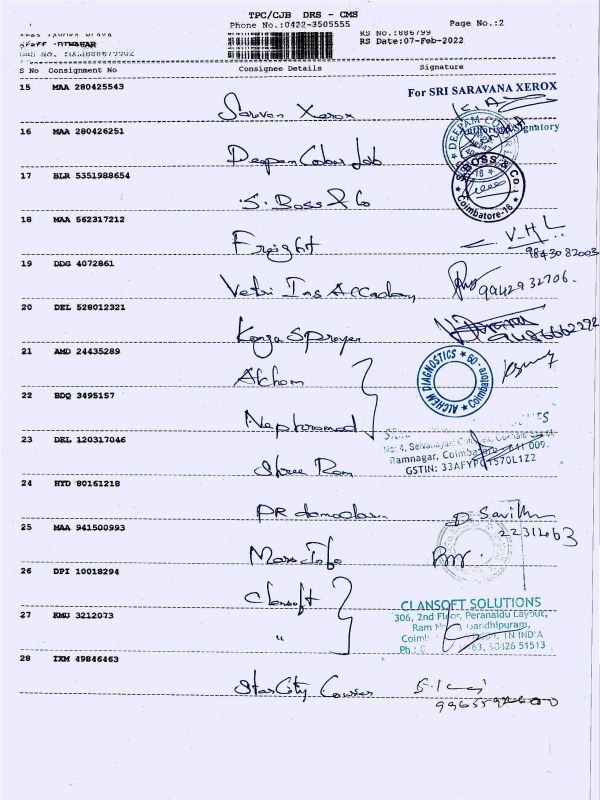 TPC/CJB DRS - CMS
Phone No.:0422-3505555
Page No.:2
RS No.:886799
RS Date:07-Feb-2022
S No Consignment No Consignee Details Signature
15 MAA 280425543
For SRI SARAVANA XEROX
Saravan Xerox
Authorised Signatory
16 MAA 280426251
Deepam Colour Lab
17 BLR 5351988654
S. BOSS & Co.
Coimbatore-18
S. Boss & Co
18 MAA 562317212
Freight
V-H L
9843082003
19 DDG 4072861
Vetri Ias Accadamy
9942932706.
20 DEL 528012321
21 AMD 24435289
ALCHEM DIAGNOSTICS * Coimbatore - 09 *
Alchem
22 BDQ 3495157
23 DEL 120317046
No: 4, Selvanayaki Complex, Gokhale Street
Ramnagar, Coimbatore - 641 009.
GSTIN: 33AFYPG1570L1Z2
Shree Ram
24 HYD 80161218
PR damodaran
D. Savithri
2231463
25 MAA 941500993
Mass Info
26 DPI 10018294
Clansoft
CLANSOFT SOLUTIONS
306, 2nd Floor, Peranaidu Layout,
Gandhipuram,
27 KMU 3212073
"
TN INDIA
63, 93426 51513
28 IXM 49846463
Star City Courier